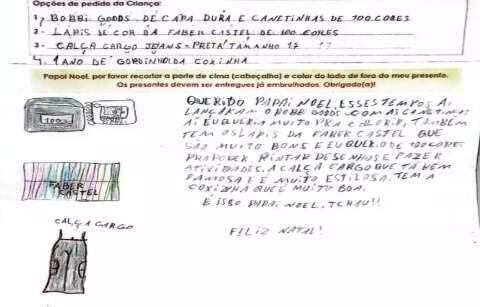 Opções de pedido da Criança:
1. BOBBI GOODS DE CAPA DURA E CANETINHAS DE 100 CORES
2. LAPIS DE COR DA FABER CASTEL DE 100 CORES
3. CALÇA CARGO JEANS-PRETA TAMANHO 17
4. 1 ANO DE GORDINHO DA COXINHA
Papai Noel, por favor recortar a parte de cima (cabeçalha) e colar do lado de fora do meu presente.
Os presentes devem ser entregues já embrulhados. Obrigado(a)!
QUERIDO PAPAI NOEL, ESSES TEMPOS AI
LANÇARAM O BOBBI GOODS COM AS CANETINHAS
AI EU QUERIA MUITO PRA COLORIR, TAMBÉM
TEM OS LAPIS DA FABER CASTEL QUE
SÃO MUITO BONS E EU QUERO DE 100 CORES
PRA PODER PINTAR DESENHOS E FAZER
ATIVIDADES. A CALÇA CARGO QUE TÁ BEM
FAMOSA E É MUITO ESTILOSA. TEM A
COXINHA QUE É MUITO BOA.
É ISSO PAPAI NOEL, TCHAU!!
FELIZ NATAL!
100
FABER
CASTEL
CALÇA CARGO